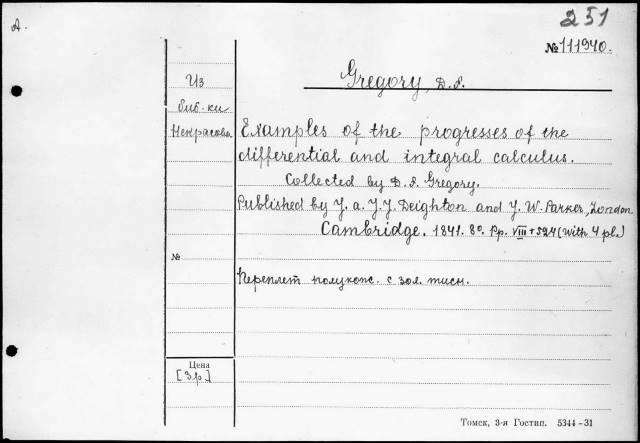 A.
251
№ 111940.
Из
биб-ки
Некрасова
Gregory, D.F.
Examples of the progresses of the
differential and integral calculus.
Collected by D.F. Gregory.
Published by J. a. J.J. Deighton and J. W. Parker, London
Cambridge. 1841. 8º. Pp. VIII + 524 (With 4 pl.)
№
Переплет полукож. с зол. тисн.
Цена
[3р.]
Томск, 3-я Гостип. 5344-31